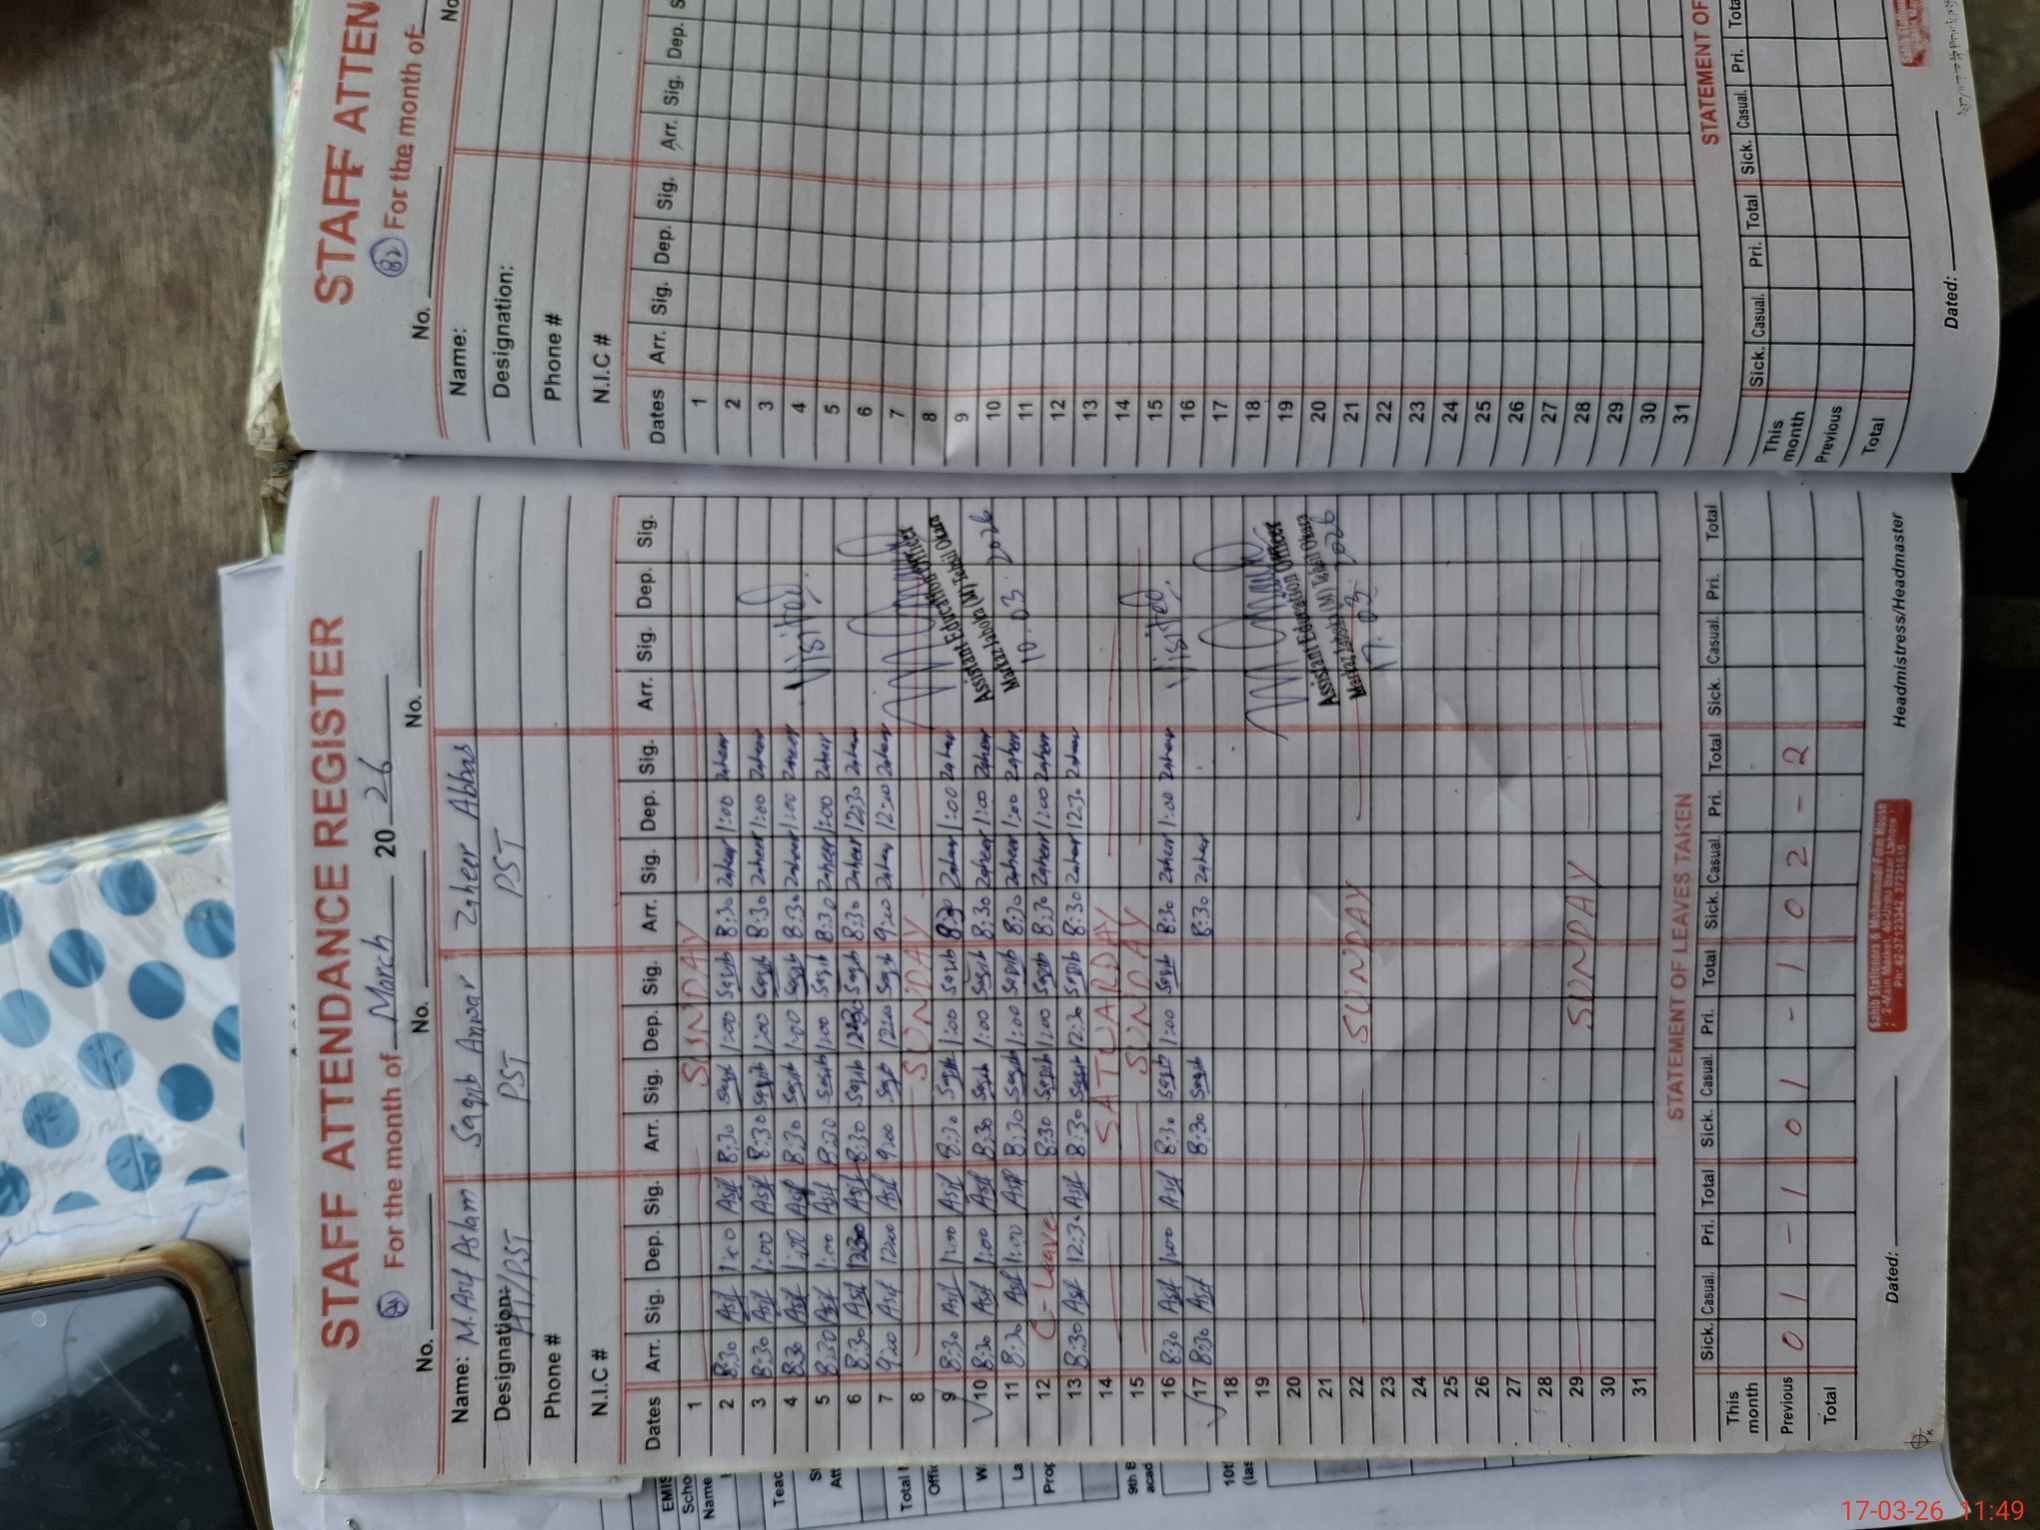 STAFF ATTENDANCE REGISTER
For the month of March 20 26
No. No. No.
Name: M. Asif Aslam Saqib Anwar Zaheer Abbas
Designation: PST PST
Phone #
N.I.C #
Dates Arr. Sig. Dep. Sig. Arr. Sig. Dep. Sig. Arr. Sig. Dep. Sig. Arr. Sig. Dep. Sig.
1 SUNDAY
2 8:30 Asif 1:00 Asif 8:30 Saqib 1:00 Saqib 8:30 Zaheer 1:00 Zaheer
3 8:30 Asif 1:00 Asif 8:30 Saqib 1:00 Saqib 8:30 Zaheer 1:00 Zaheer
4 8:30 Asif 1:00 Asif 8:30 Saqib 1:00 Saqib 8:30 Zaheer 1:00 Zaheer Visited
5 8:30 Asif 1:00 Asif 8:30 Saqib 1:00 Saqib 8:30 Zaheer 1:00 Zaheer
6 8:30 Asif 12:30 Asif 8:30 Saqib 12:30 Saqib 8:30 Zaheer 12:30 Zaheer
7 9:00 Asif 12:00 Asif 9:00 Saqib 12:00 Saqib 9:00 Zaheer 12:00 Zaheer
8 SUNDAY
9 8:30 Asif 1:00 Asif 8:30 Saqib 1:00 Saqib 8:30 Zaheer 1:00 Zaheer
10 8:30 Asif 1:00 Asif 8:30 Saqib 1:00 Saqib 8:30 Zaheer 1:00 Zaheer
Assistant Education Officer
Markaz Jaboka (M) Tehsil Okara
10.03.2026
11 8:30 Asif 1:00 Asif 8:30 Saqib 1:00 Saqib 8:30 Zaheer 1:00 Zaheer
12 C-Leave 8:30 Saqib 1:00 Saqib 8:30 Zaheer 1:00 Zaheer
13 8:30 Asif 12:30 Asif 8:30 Saqib 12:30 Saqib 8:30 Zaheer 12:30 Zaheer
14 SATUARDAY
15 SUNDAY
16 8:30 Asif 1:00 Asif 8:30 Saqib 1:00 Saqib 8:30 Zaheer 1:00 Zaheer Visited
17 8:30 Asif 8:30 Saqib 8:30 Zaheer
18
19
20
Assistant Education Officer
Markaz Jaboka (M) Tehsil Okara
17.03.2026
21
22 SUNDAY
23
24
25
26
27
28
29 SUNDAY
30
31
STATEMENT OF LEAVES TAKEN
Sick. Casual. Pri. Total Sick. Casual. Pri. Total Sick. Casual. Pri. Total Sick. Casual. Pri. Total
This month
Previous 0 1 - 1 0 1 - 1 0 2 - 2
Total
Dated: Headmistress/Headmaster
STAFF ATTEN
82 For the month of
No. No
Name:
Designation:
Phone #
N.I.C #
Dates Arr. Sig. Dep. Sig. Arr. Sig. Dep. S
1
2
3
4
5
6
7
8
9
10
11
12
13
14
15
16
17
18
19
20
21
22
23
24
25
26
27
28
29
30
31
STATEMENT OF
Sick. Casual. Pri. Total Sick. Casual. Pri. Tota
This month
Previous
Total
Dated:
EMIS
Scho
Name
Teac
Total
Offic
17-03-26 11:49